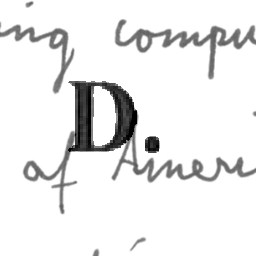 ing compu
D.
of Ameri